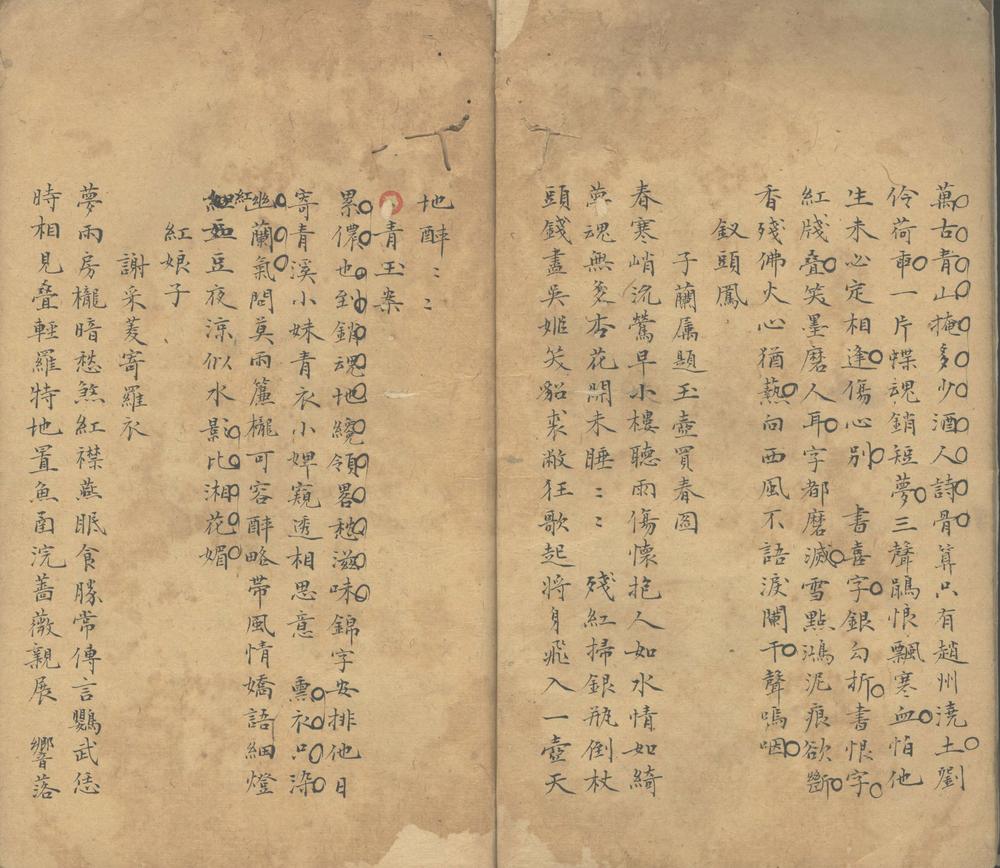 萬古青山掩多少酒人詩骨算只有趙州澆土劉
伶荷鍤一片蝶魂銷短夢三聲鵑恨飄寒血怕他
生未必定相逢傷心別　書喜字銀勾折書恨字
紅牋疊笑墨磨人耳字都磨滅雪點鴻泥痕欲斷
香殘佛火心猶熱向西風不語淚闌干聲嗚咽
釵頭鳳
子蘭属題玉壺買春圖
春寒峭流鶯早小樓聽雨傷懷抱人如水情如綺
無杏花開未睡〻〻　殘紅掃銀瓶倒杖
頭錢盡吳姬笑貂裘敝狂歌起將身飛入一壺天
地醉〻〻
青玉案
累儂也到銷魂地纔領畧愁滋味錦字安排他日
寄青溪小妹青衣小婢窺透相思意　熏衣只染
幽蘭氣問莫雨簾櫳可容醉略帶風情嬌語細燈
紅豆夜涼似水影比湘花媚
紅娘子
謝采菱寄羅衣
夢雨房櫳暗愁煞紅襟燕眠食勝常傳言鸚武恁
時相見疊輕羅特地置魚函浣薔薇親展　響落